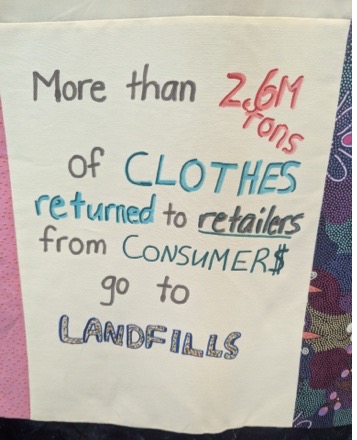 More than 2.6M
Tons
of CLOTHES
returned to retailers
from CONSUMER$
go to
LANDFILLS